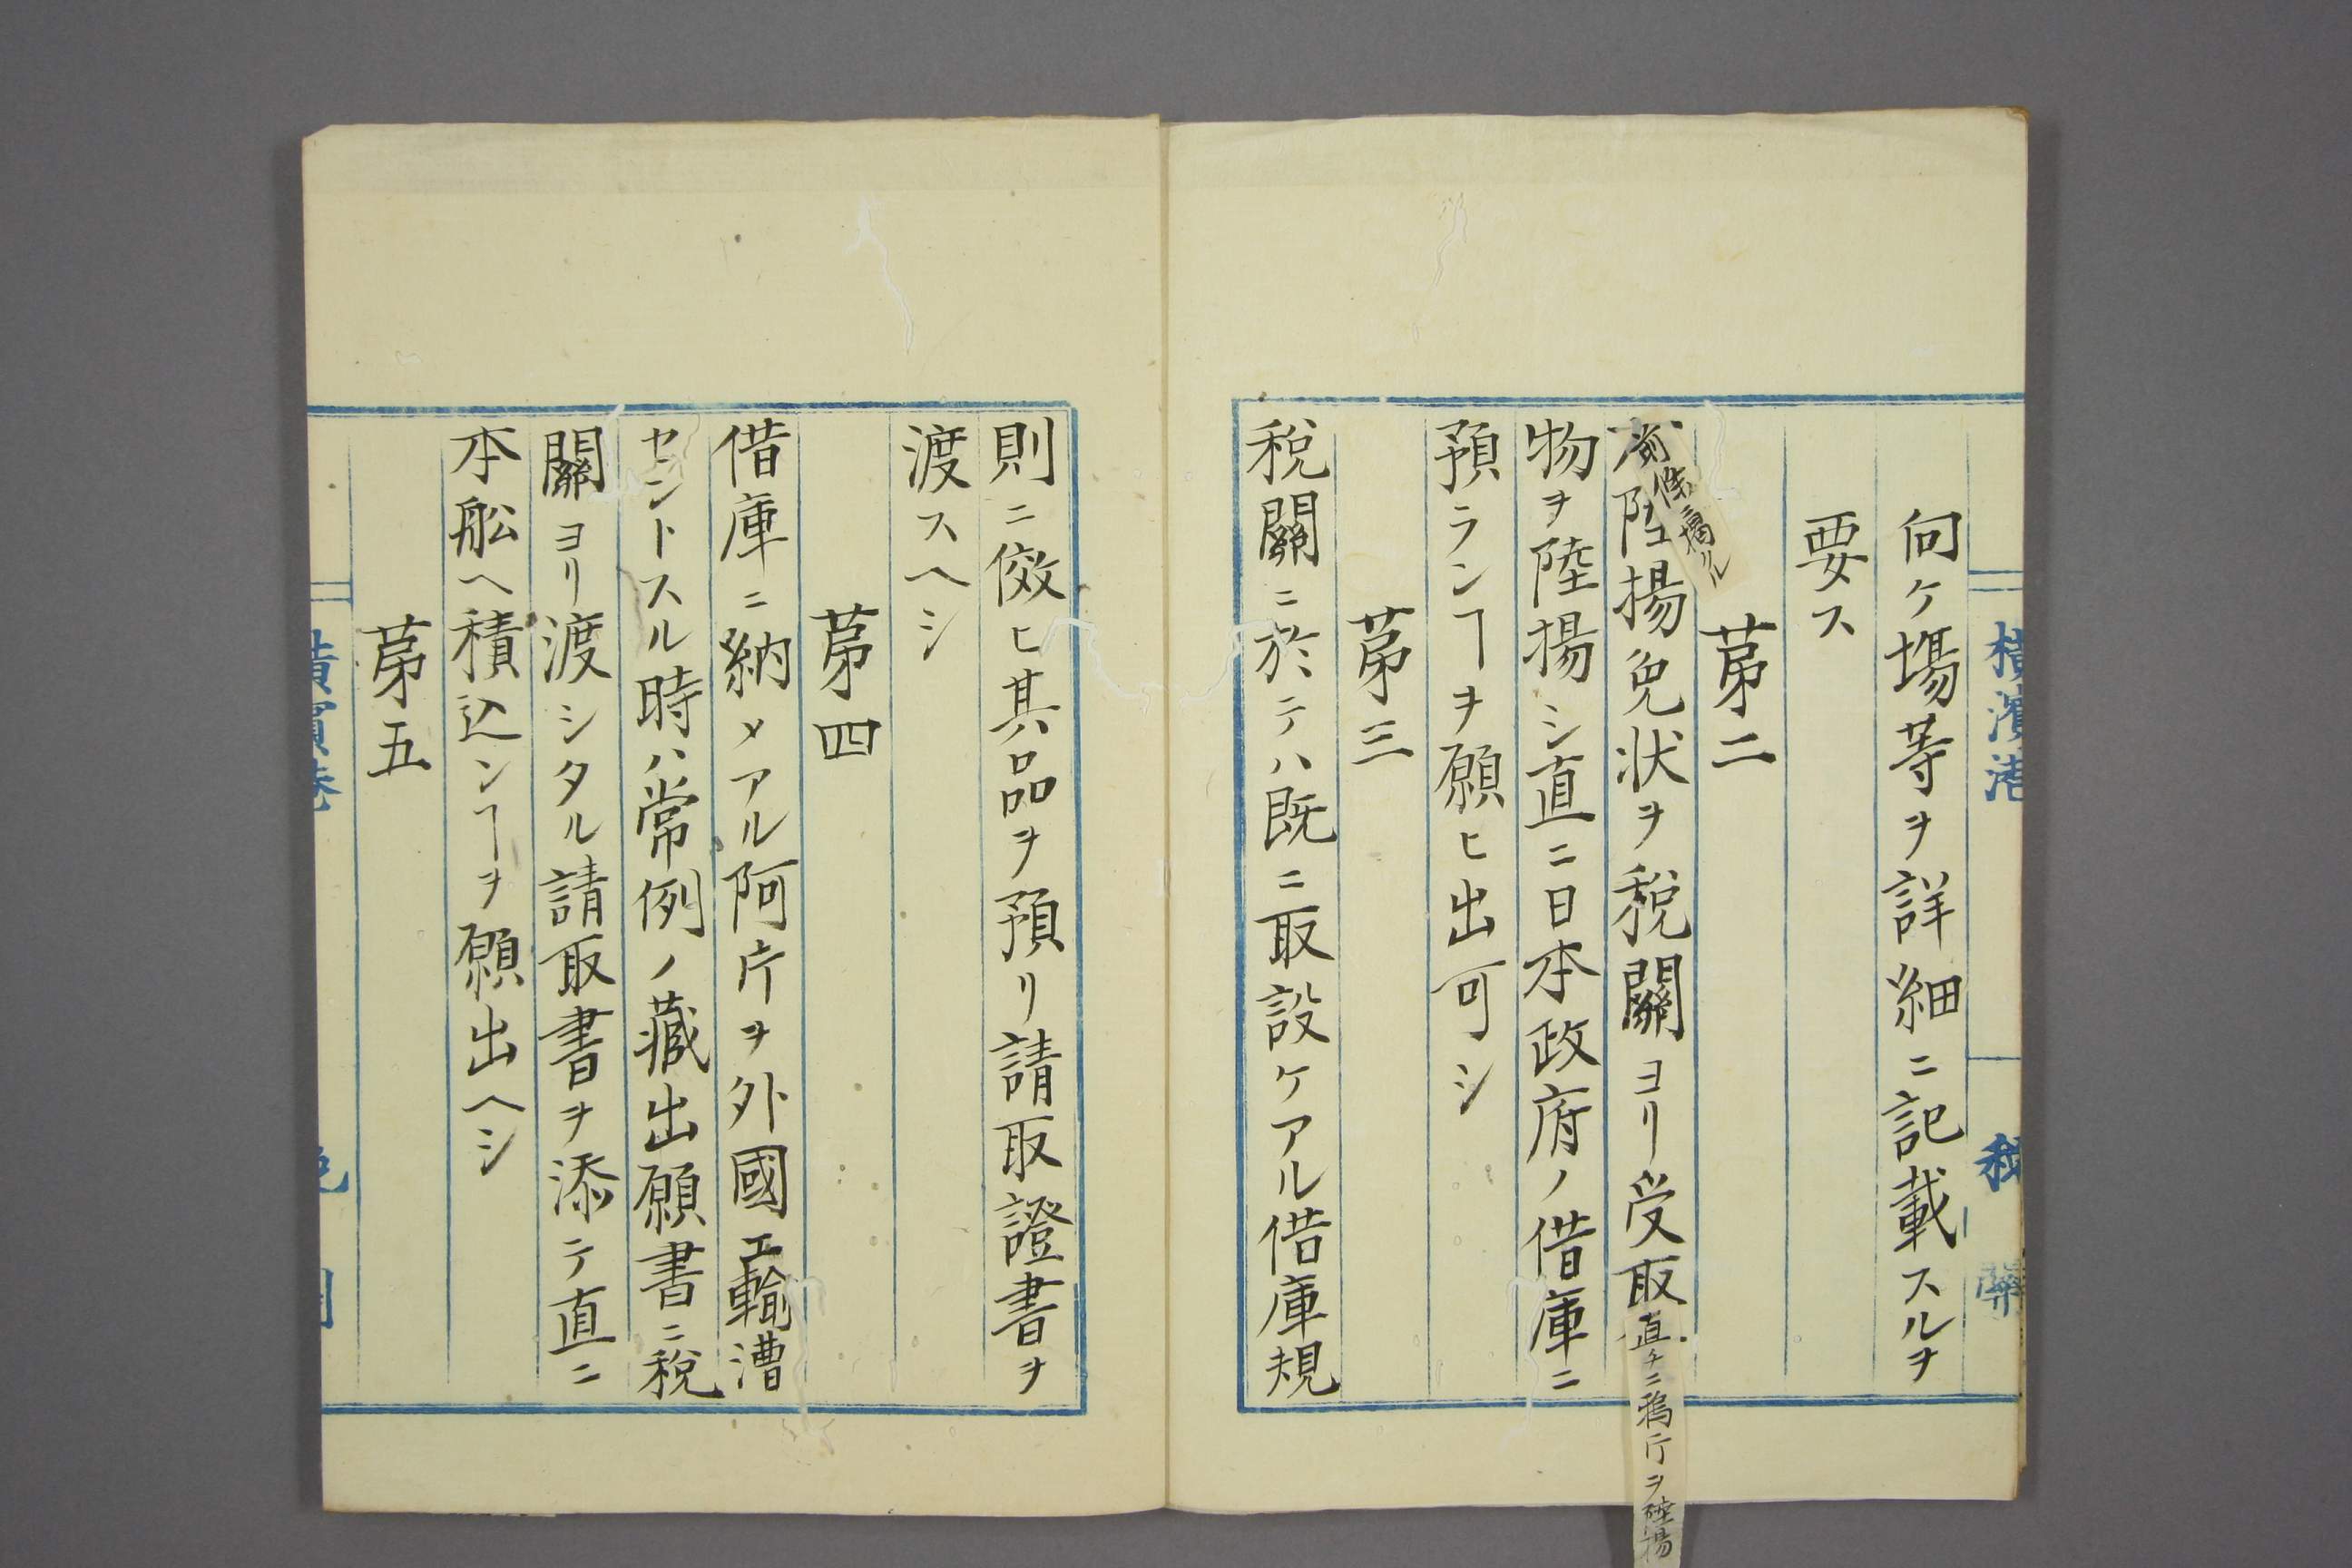 向ケ塲等ヲ詳細ニ記載スルヲ
要ス
苐二
陸揚免状ヲ税關ヨリ受取
前條ニ揭ル
直チニ鴉片ヲ陸揚
物ヲ陸揚シ直ニ日本政府ノ借庫ニ
預ランヿヲ願ヒ出可シ
苐三
税關ニ於テハ既ニ取設ケアル借庫規
則ニ傚ヒ其品ヲ預リ請取證書ヲ
渡スヘシ
苐四
借庫ニ納メアル阿片ヲ外國エ輸漕
セントスル時ハ常例ノ藏出願書ニ税
關ヨリ渡シタル請取書ヲ添テ直ニ
本舩ヘ積込ンヿヲ願出ヘシ
苐五
横濱港
税關